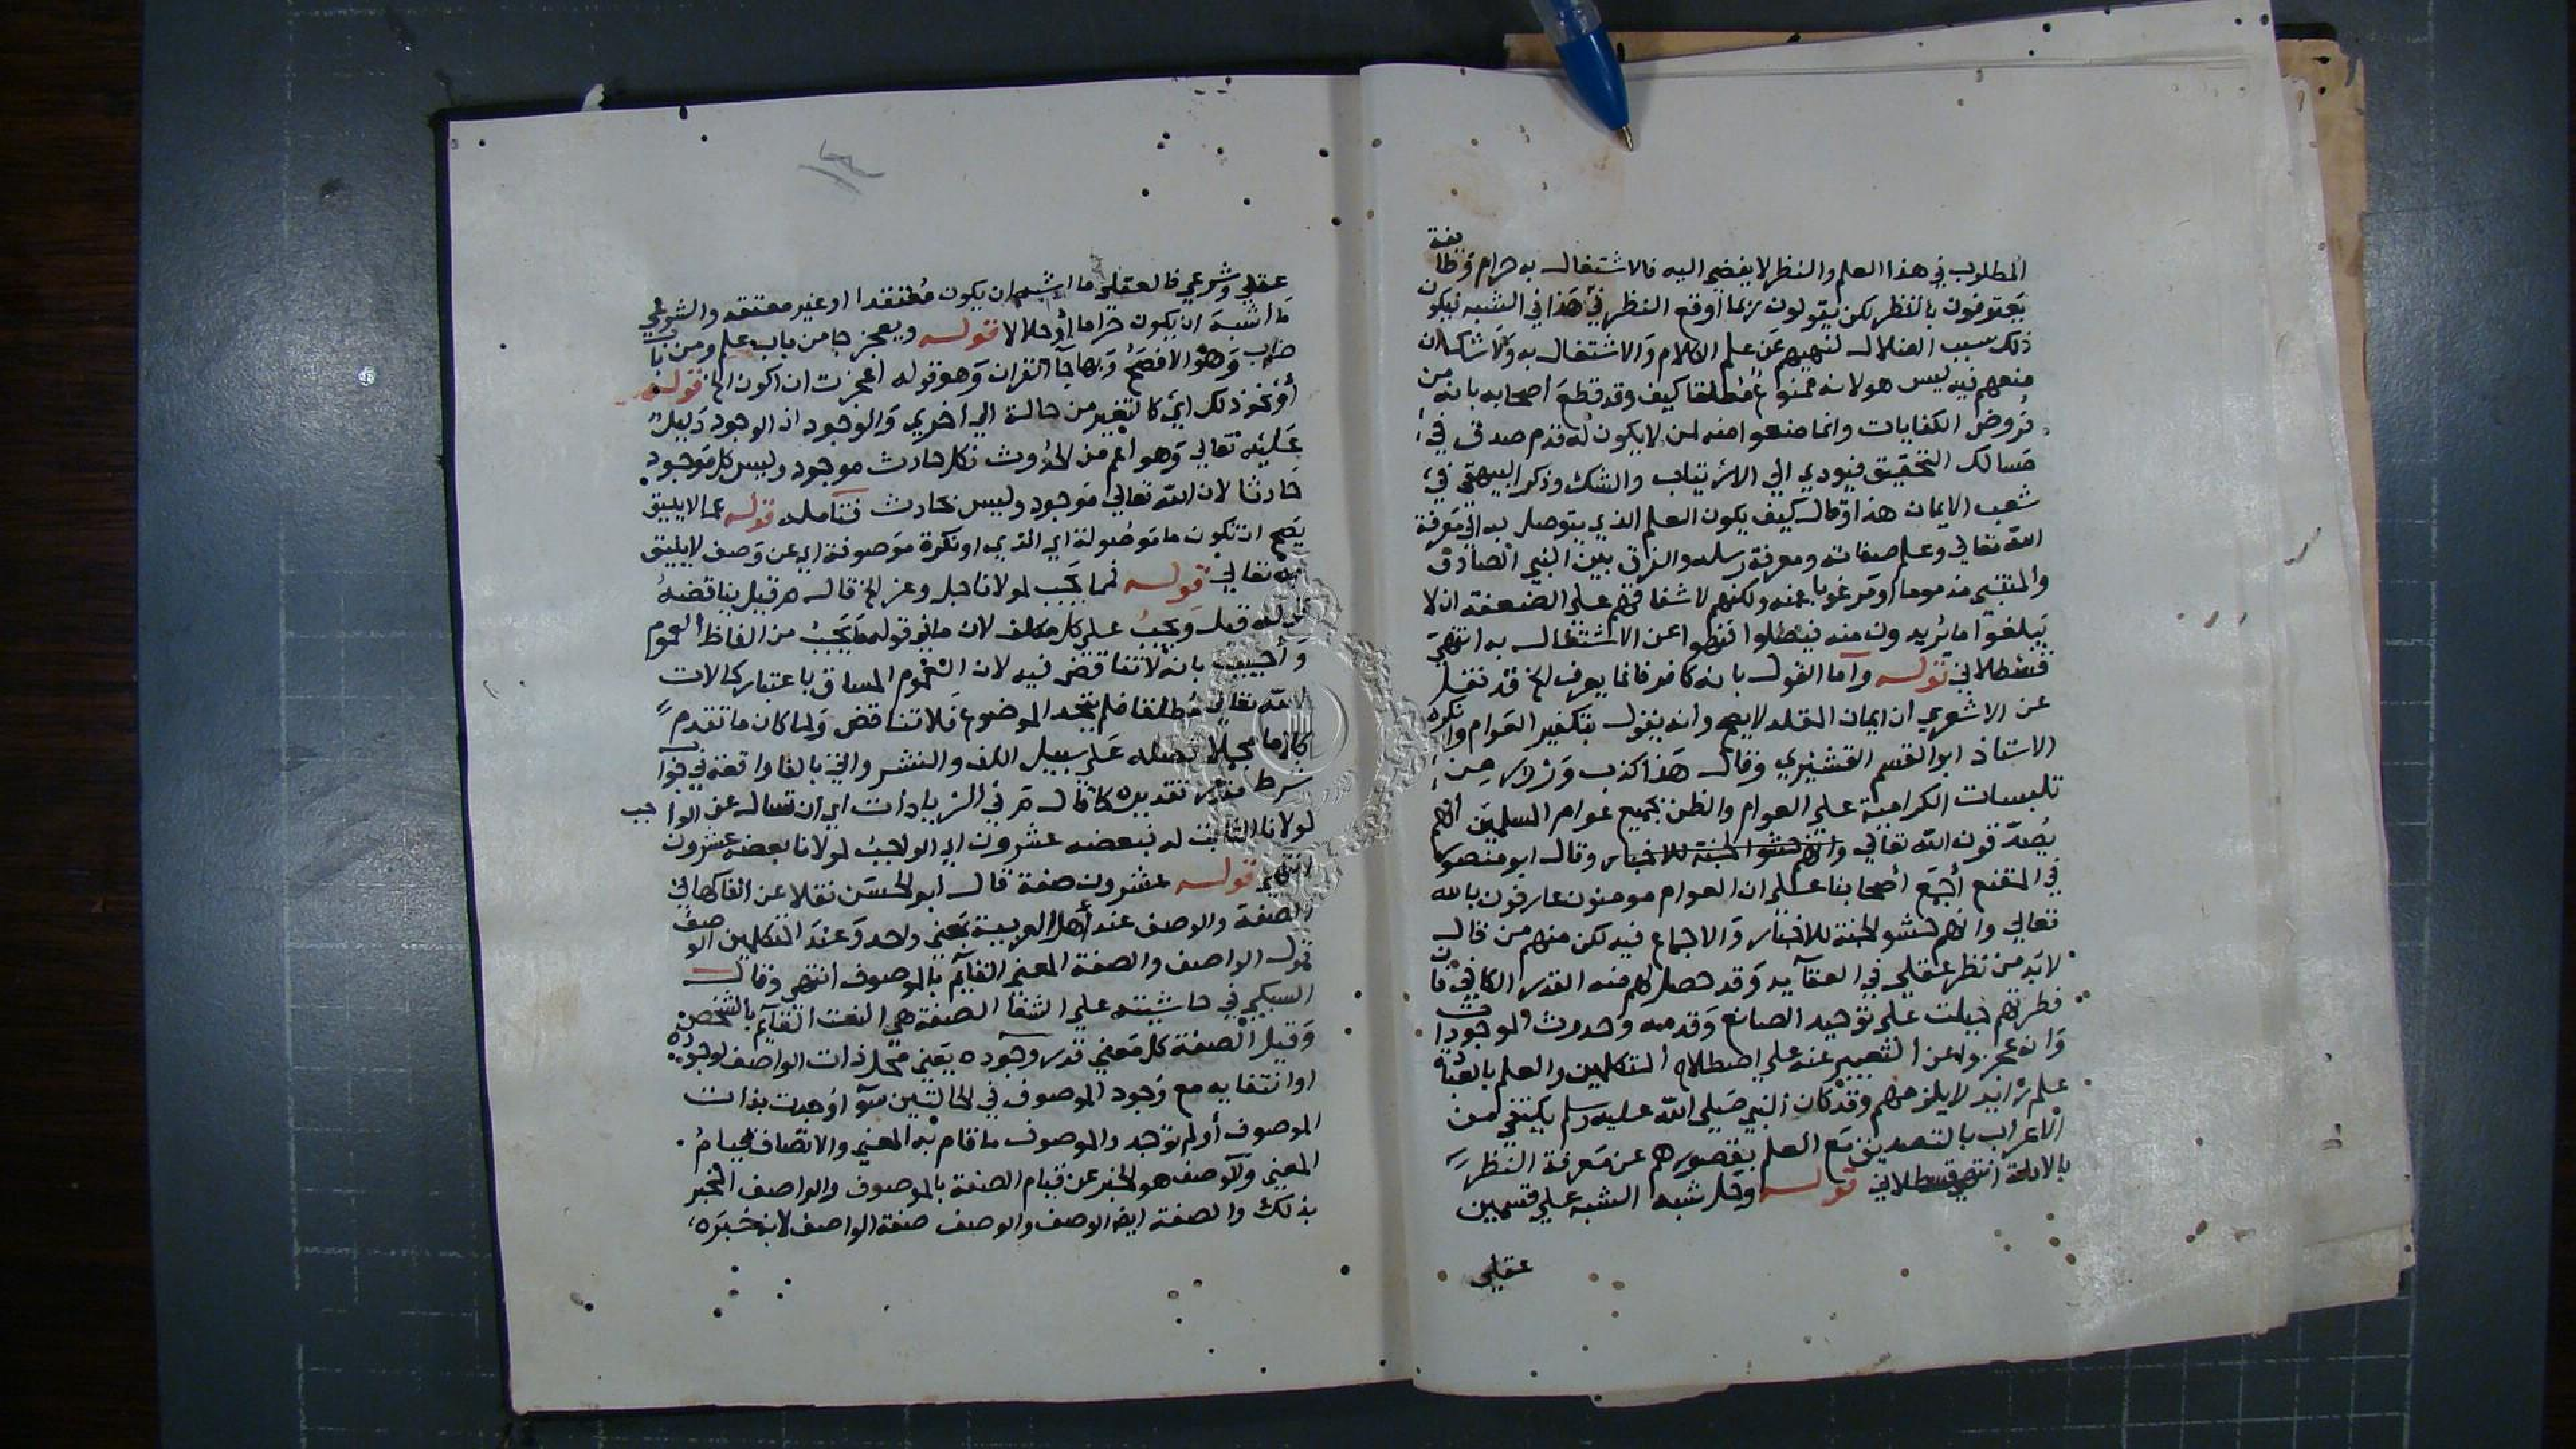 المطلوب في هذا العلم والنظر لا يفضي اليه فالاشتغال به حرام وطايفة
يعترفون بالنظر لكن يقولون ربما اوقع النظر في هذا في الشبه فيكون
ذلك سبب الضلال لنهيهم عن علم الكلام والاشتغال به ولا شك ان
منعهم فيه ليس هو لانه ممنوع مطلقا كيف وقد قطع اصحابه بانه من
فروض الكفايات وانما منعوا منه لمن لا يكون له قدم صدق في
مسالك التحقيق فيودي الي الارتياب والشك وذكر البيهقي في
شعب الايمان هذا وقال كيف يكون العلم الذي يتوصل به الي معرفة
الله تعالي وعلم صفاته ومعرفة رسله والفرق بين النبي الصادق
والمتنبي مذموما او مرغوبا عنه ولكنهم لاشفاقهم علي الضعفة ان لا
يبلغوا ما يريدون منه فيضلوا نهوا عن الاشتغال به انتهي
قسطلاني قوله واما القول بانه كافر فانما يعرف الخ قد نقل
عن الاشعري ان ايمان المقلد لا يصح وانه يقول بتكفير العوام وانكره
الاستاذ ابو القسم القشيري وقال هذا كذب وزور من
تلبيسات الكرامية علي العوام والظن بجميع عوام المسلمين انهم
يصدقون الله تعالي وقال ابو منصور
في المقنع اجمع اصحابنا علي ان العوام مومنون عارفون بالله
تعالي وانهم حشو الجنة للاخبار والاجماع فيه لكن منهم من قال
لا بد من نظر عقلي في العقايد وقد حصل لهم منه القدر الكافي فان
فطرتهم جبلت علي توحيد الصانع وقدمه وحدوث الموجودات
وان عجزوا عن التعبير عنه علي اصطلاح المتكلمين والعلم بالعبارة
علم زايد لا يلزمهم وقد كان النبي صلي الله عليه وسلم يكتفي من
الاعراب بالتصديق مع العلم بقصورهم عن معرفة النظر
بالادلة انتهي قسطلاني قوله وحل شبه الشبه علي قسمين
عقلي
عقلي وشرعي فالعقلي ما اشبه ان يكون معتقدا او غير معتقد والشرعي
ما اشبه ان يكون حراما او حلالا قوله ويعجز جا من باب علم ومن باب
ضرب وهو الافصح وبها جا القران وهو قوله اعجزت ان اكون الخ قوله
او نحو ذلك اي كالتغيير من حالة الي اخري والوجود اذ الوجود دليل
عليه تعالي وهو اعم من الحدوث فكل حادث موجود وليس كل موجود
حادثا لان الله تعالي موجود وليس بحادث فتامله قوله عما لا يليق
يصح ان تكون ما موصولة اي الذي او نكرة موصوفة اي عن وصف لا يليق
به تعالي قوله فما يجب لمولانا جل وعز الخ قال م ر قيل يناقضه
قوله قبل ويجب علي كل مكلف لان ما في قوله ما يجب من الفاظ العموم
واجيب بانه لا تناقض فيه لان العموم المساق باعتبار كمالات
الله تعالي مطلقا فلم يتحد الموضوع فلا تناقض ولما كان ما تقدم
كلاما مجملا فصله علي سبيل اللف والنشر واتي بالفا واقعة في جواب
شرط مقدر تقديره كما قال م ر في الزيادات اي ان تسال عن الواجب
لمولانا الثابت له فبعضه عشرون اي الواجب لمولانا بعضه عشرون
انتهي قوله عشرون صفة قال ابو الحسن نقلا عن الفاكهاني
الصفة والوصف عند اهل العربية بمعني واحد وعند المتكلمين الوصف
قول الواصف والصفة المعني القايم بالموصوف انتهي وقال
السبكي في حاشيته علي الشفا الصفة هي النعت القايم بالشخص
وقيل الصفة كل معني قدر وجوده يعني محل ذات الواصف لوجوده
او انتفايه مع وجود الموصوف في الحالتين سوا اوحدت بذات
الموصوف او لم توجد والموصوف ما قام به المعني والاتصاف قيام
المعني والوصف هو الخبر عن قيام الصفة بالموصوف والواصف المخبر
بذلك والصفة ايضا الوصف والوصف صفة الواصف لانه خبره